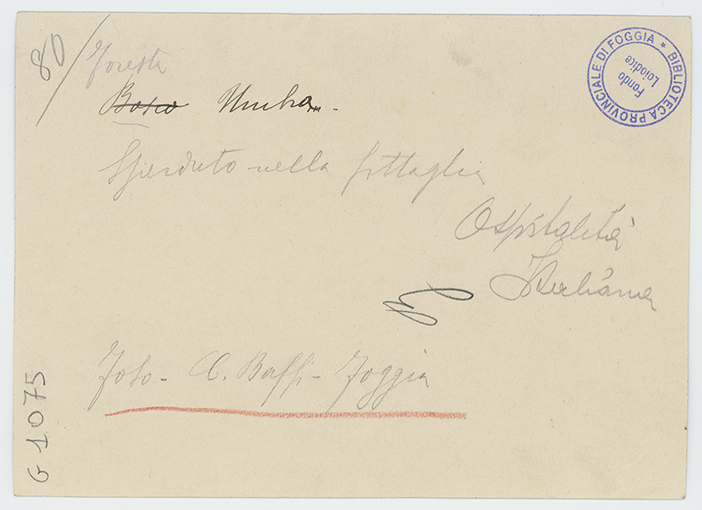 80/
Foresta
Bosco Umbra.
Sperduto nella frittaglia
Ospitalità
Italiana
Foto - C. Baffi - Foggia
G 1075
BIBLIOTECA PROVINCIALE DI FOGGIA *
Fondo
Loiodice